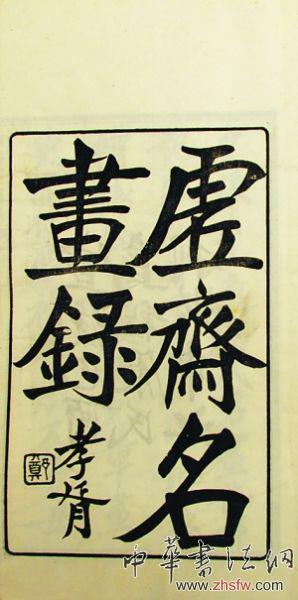 虚齋名
畫録
孝胥
鄭
中華书法网
www.zhsfw.com